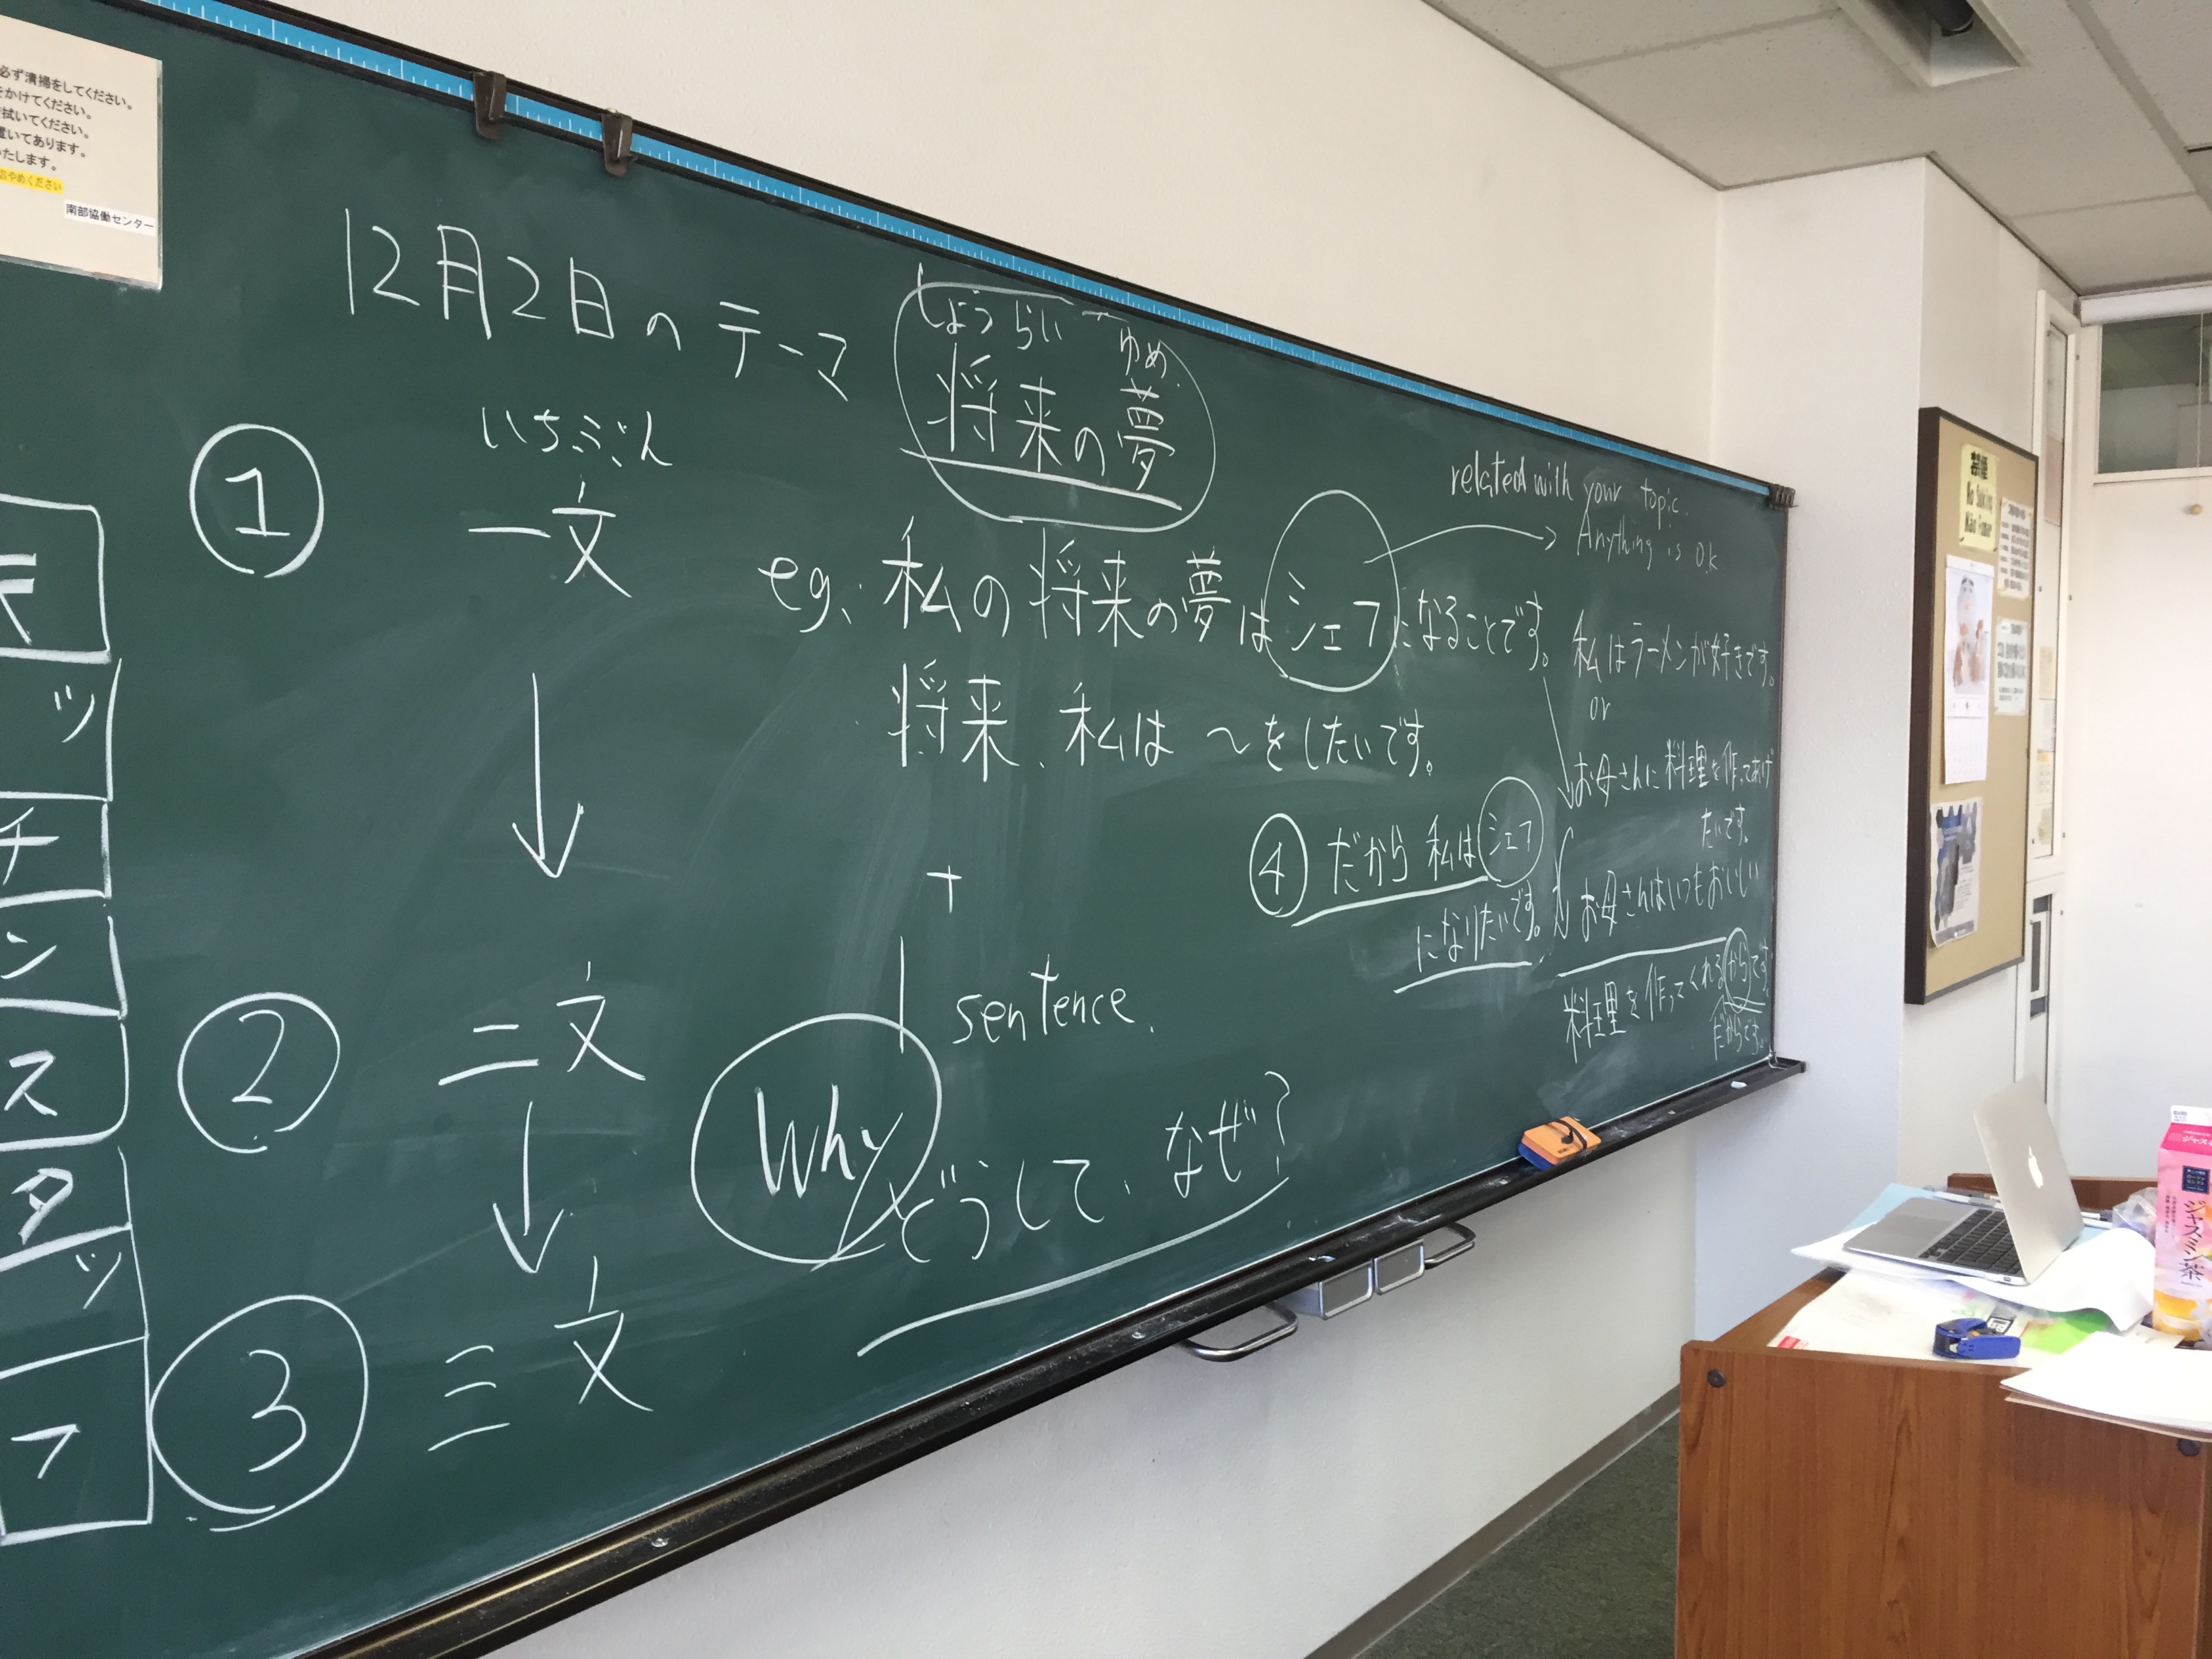 必ず清掃をしてください。
をかけてください。
拭いてください。
置いてあります。
たします。
おやめください
南部協働センター
12月2日のテーマ
しょうらい ゆめ
将来の夢
① いちぶん
一文
eg. 私の将来の夢はシェフになることです。
将来、私は〜をしたいです。
+
1 sentence.
② 二文
Why どうして、なぜ?
③ 三文
related with your topic.
Anything is O.K
私はラーメンが好きです。
or
お母さんに料理を作ってあげ
たいです。
お母さんはいつもおいしい
料理を作ってくれるからです
だからです。
④ だから私はシェフ
になりたいです。
ッ
チ
ン
ス
タ
ッ
フ
ジャスミン茶